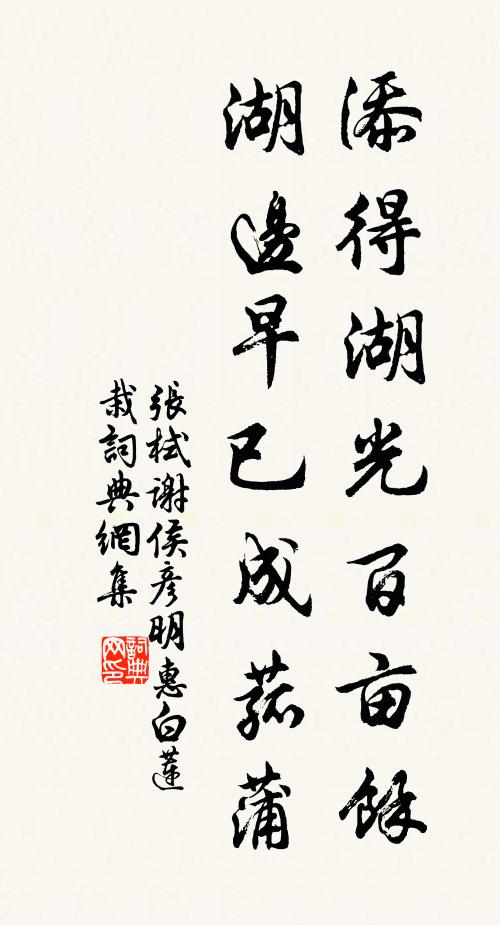 添得湖光百亩餘
湖邊早已成菰蒲
張栻谢侯彦明惠白蓮
栽詞典網集
詞典網印